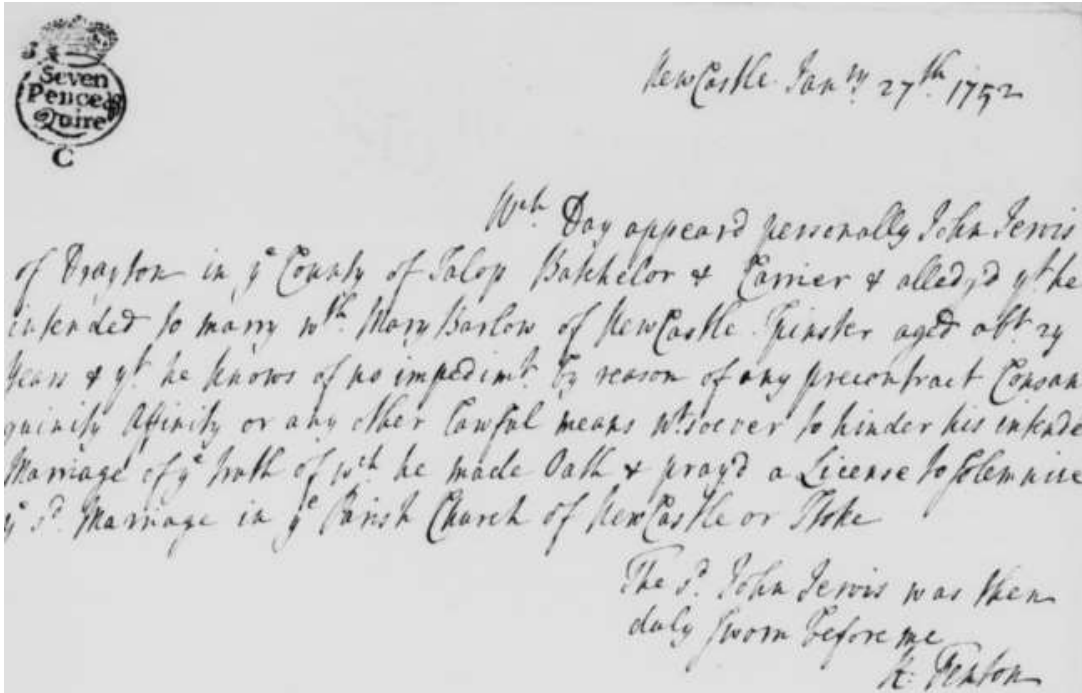 Seven
Pence ⅌
Quire
C
NewCastle Janry 27th 1752
Wch Day appear'd personally John Jervis
of Drayton in ye County of Salop Batchelor & Carrier & alledg'd yt he
intended to marry wth Mary Barlow of NewCastle Spinster aged abt 29
Years & yt he knows of no impedimt by reason of any precontract Consan
guinity Affinity or any other Lawful means wtsoever to hinder his intende
Marriage of ye truth of wch he made Oath & pray'd a License to solemnize
ye sd Marriage in ye Parish Church of NewCastle or Stoke
The sd John Jervis was then
duly sworn before me
R: Fenton